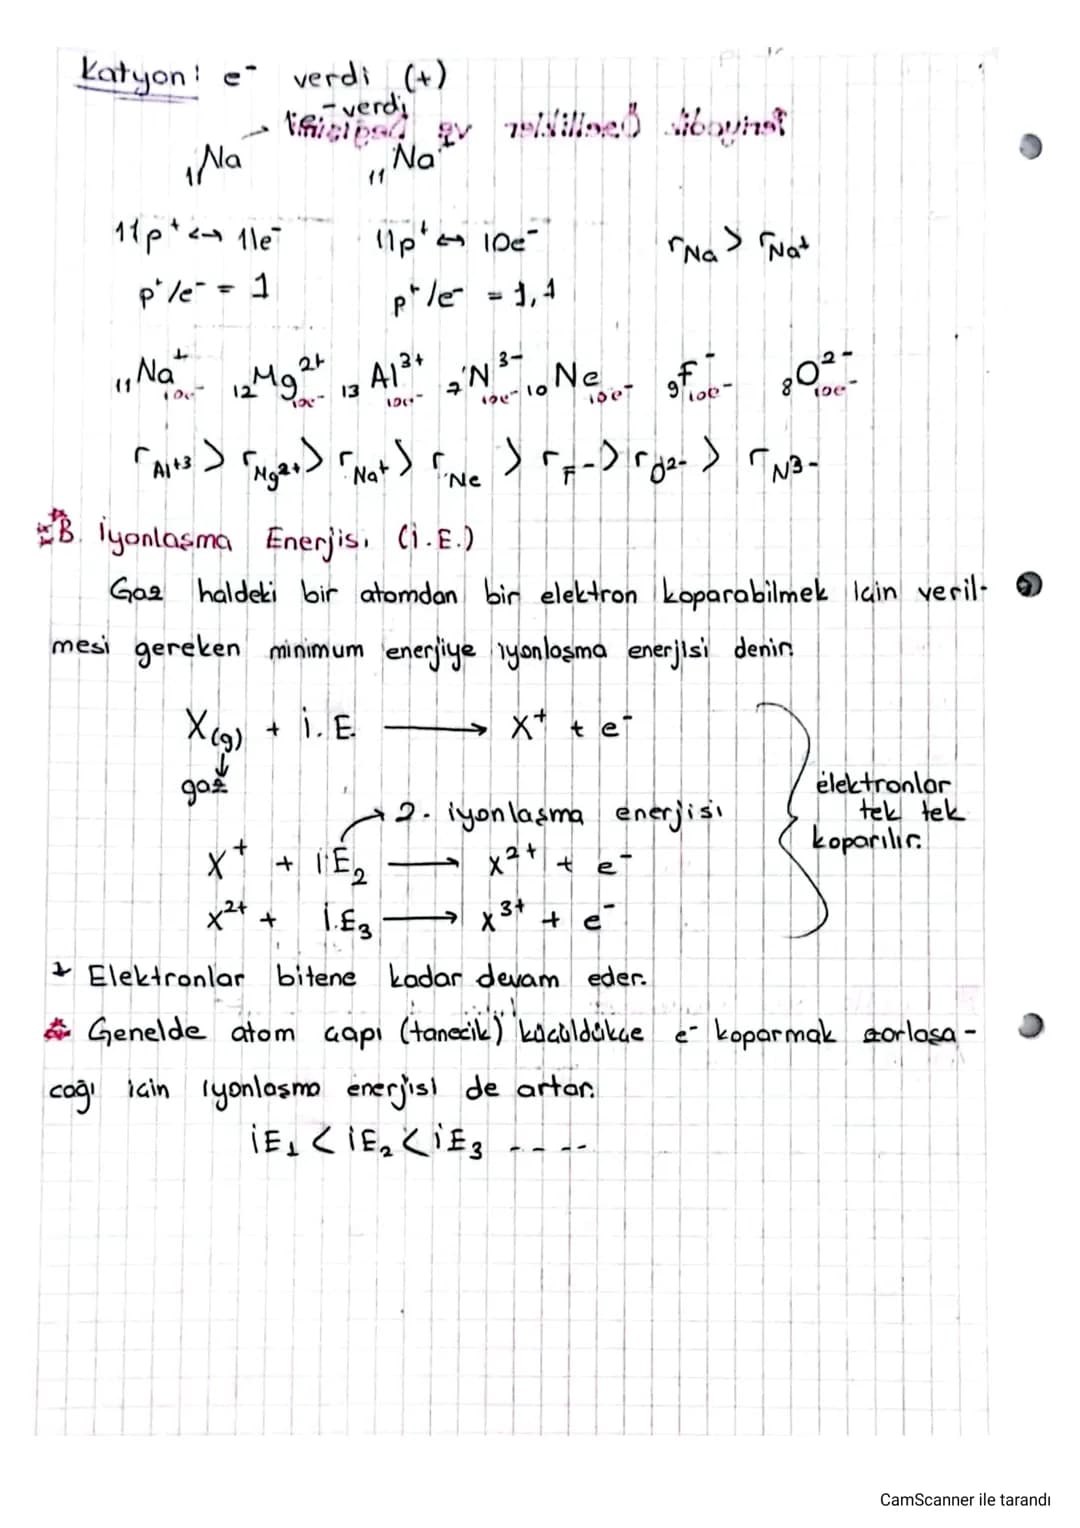 Katyon: e⁻ verdi (+)
e⁻ verdi
₁₁Na → ₁₁Na⁺
11p⁺ ↔ 11e⁻ 11p⁺ ↔ 10e⁻ rNa > rNa⁺
p⁺/e⁻ = 1 p⁺/e⁻ = 1,1
₁₁Na⁺ 10e⁻ ₁₂Mg²⁺ 10e⁻ ₁₃Al³⁺ 10e⁻ ₇N³⁻ 10e⁻ ₁₀Ne 10e⁻ ₉F⁻ 10e⁻ ₈O²⁻ 10e⁻
rAl⁺³ > rMg²⁺ > rNa⁺ > rNe > rF⁻ > rO²⁻ > rN³⁻
B. İyonlaşma Enerjisi (İ.E.)
Gaz haldeki bir atomdan bir elektron koparabilmek için veril-
mesi gereken minimum enerjiye iyonlaşma enerjisi denir.
X(g) + İ.E. → X⁺ + e⁻
gaz
2. iyonlaşma enerjisi
X⁺ + İE₂ → X²⁺ + e⁻
X²⁺ + İ.E₃ → X³⁺ + e⁻
elektronlar
tek tek
koparılır.
* Elektronlar bitene kadar devam eder.
* Genelde atom çapı (tanecik) küçüldükçe e⁻ koparmak zorlaşa-
cağı için iyonlaşma enerjisi de artar.
İE₁ < İE₂ < İE₃ ----
CamScanner ile tarandı